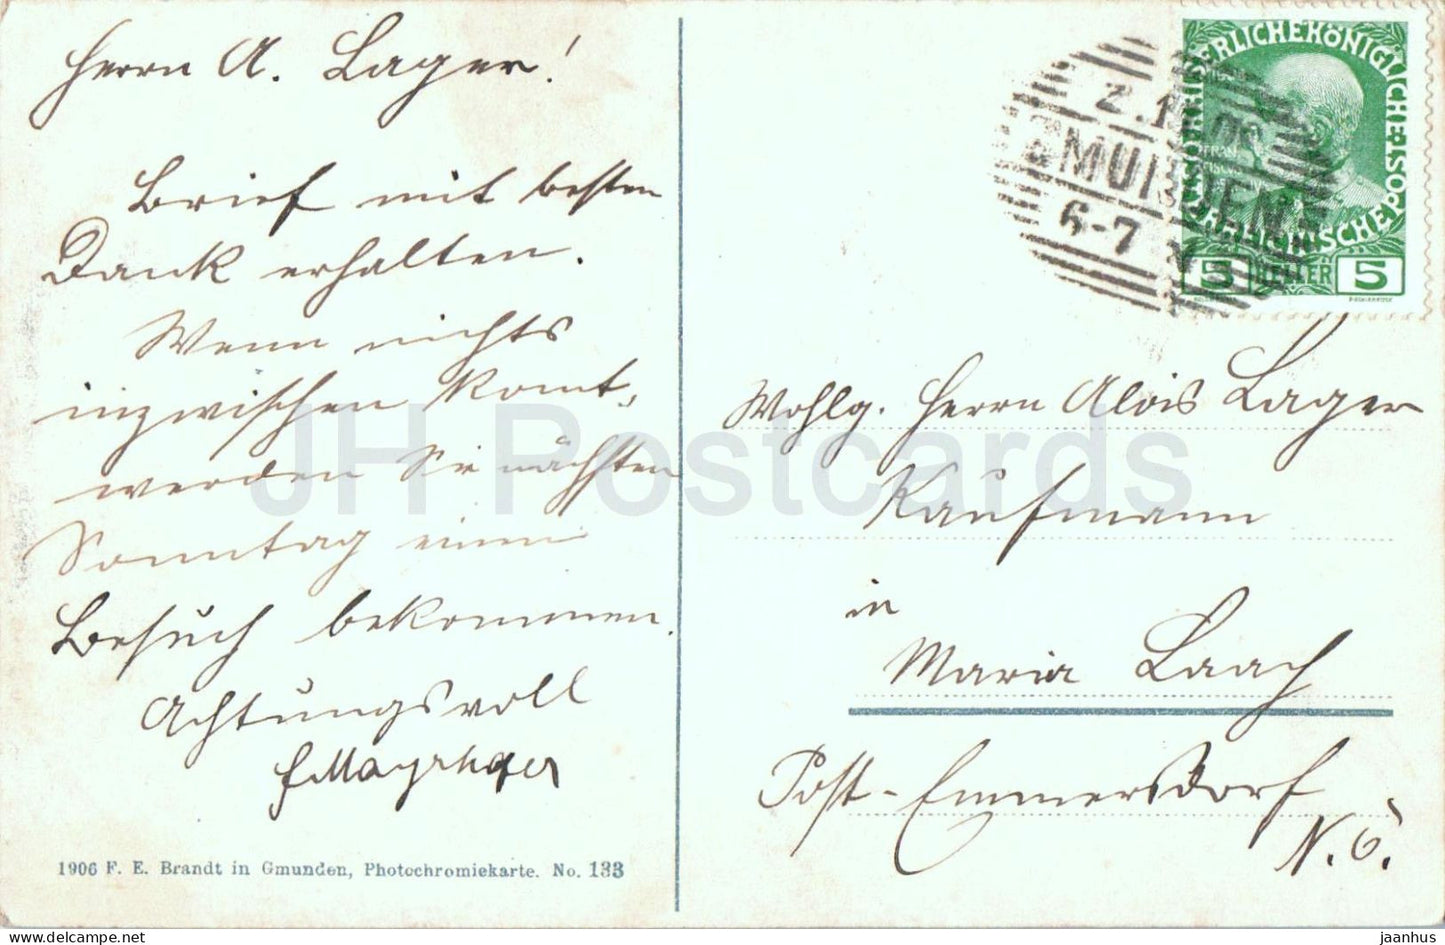 Herrn A. Lager!
Brief mit besten
Dank erhalten.
Wenn nichts
inzwischen komt,
werden Sie nächsten
Sonntag einen
Besuch bekommen.
Achtungsvoll
F. Mayrhofer
1906 F. E. Brandt in Gmunden, Photochromiekarte. No. 133
GMUNDEN
6-7
KAISERLICHE KÖNIGLICHE ÖSTERREICHISCHE POST
5 HELLER 5
Wohlg. Herrn Alois Lager
Kaufmann
in
Maria Laach
Post-Emmersdorf
N.Ö.
JH Postcards
Powered by www.delcampe.net
jaanhus